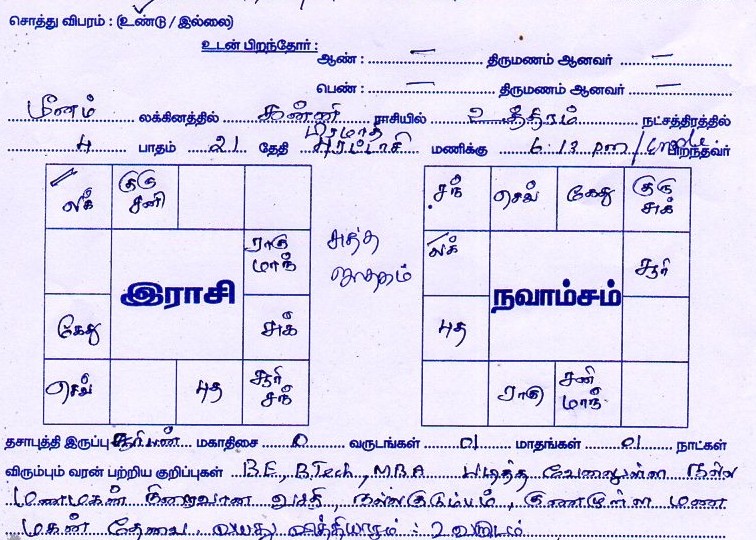 சொத்து விபரம் : (உண்டு / இல்லை)
உடன் பிறந்தோர் :
ஆண் : — திருமணம் ஆனவர் —
பெண் : — திருமணம் ஆனவர் —
மீனம் லக்கினத்தில் கன்னி ராசியில் உத்திரம் நட்சத்திரத்தில்
4 பாதம் 21 தேதி புரட்டாசி மணிக்கு 6.13 pm பிறந்தவர்
லக் குரு சனி
ராகு மாந்
கேது சுக்
செவ் புத சூரி சந்
இராசி
சுத்த ஜாதகம்
சந் செவ் கேது குரு சுக்
லக் சூரி
புத
ராகு சனி மாந்
நவாம்சம்
தசாபுத்தி இருப்பு சூரியன் மகாதிசை 0 வருடங்கள் 01 மாதங்கள் 01 நாட்கள்
விரும்பும் வரன் பற்றிய குறிப்புகள் B.E, B.Tech, MBA படித்த வேலையுள்ள நல்ல
மணமகன் நிறைவான வசதி, நல்லகுடும்பம், குணமுள்ள மண
மகன் தேவை. வயது வித்தியாசம் : 2 வருடம்